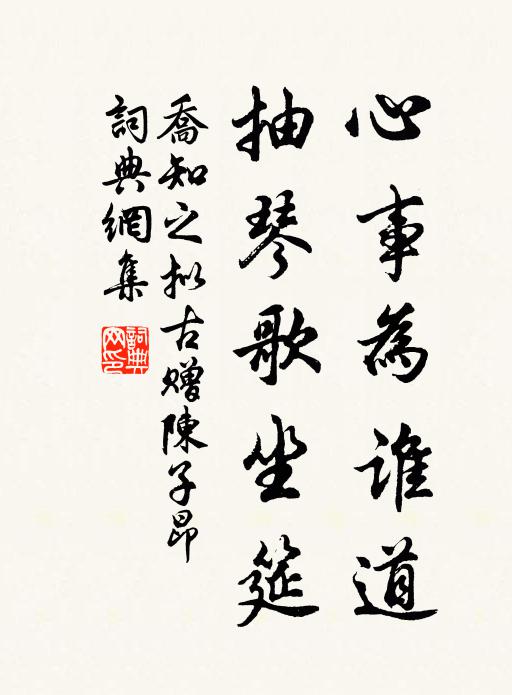 心事為誰道
抽琴歌坐筵
喬知之拟古贈陳子昂
詞典網集
詞典
网印